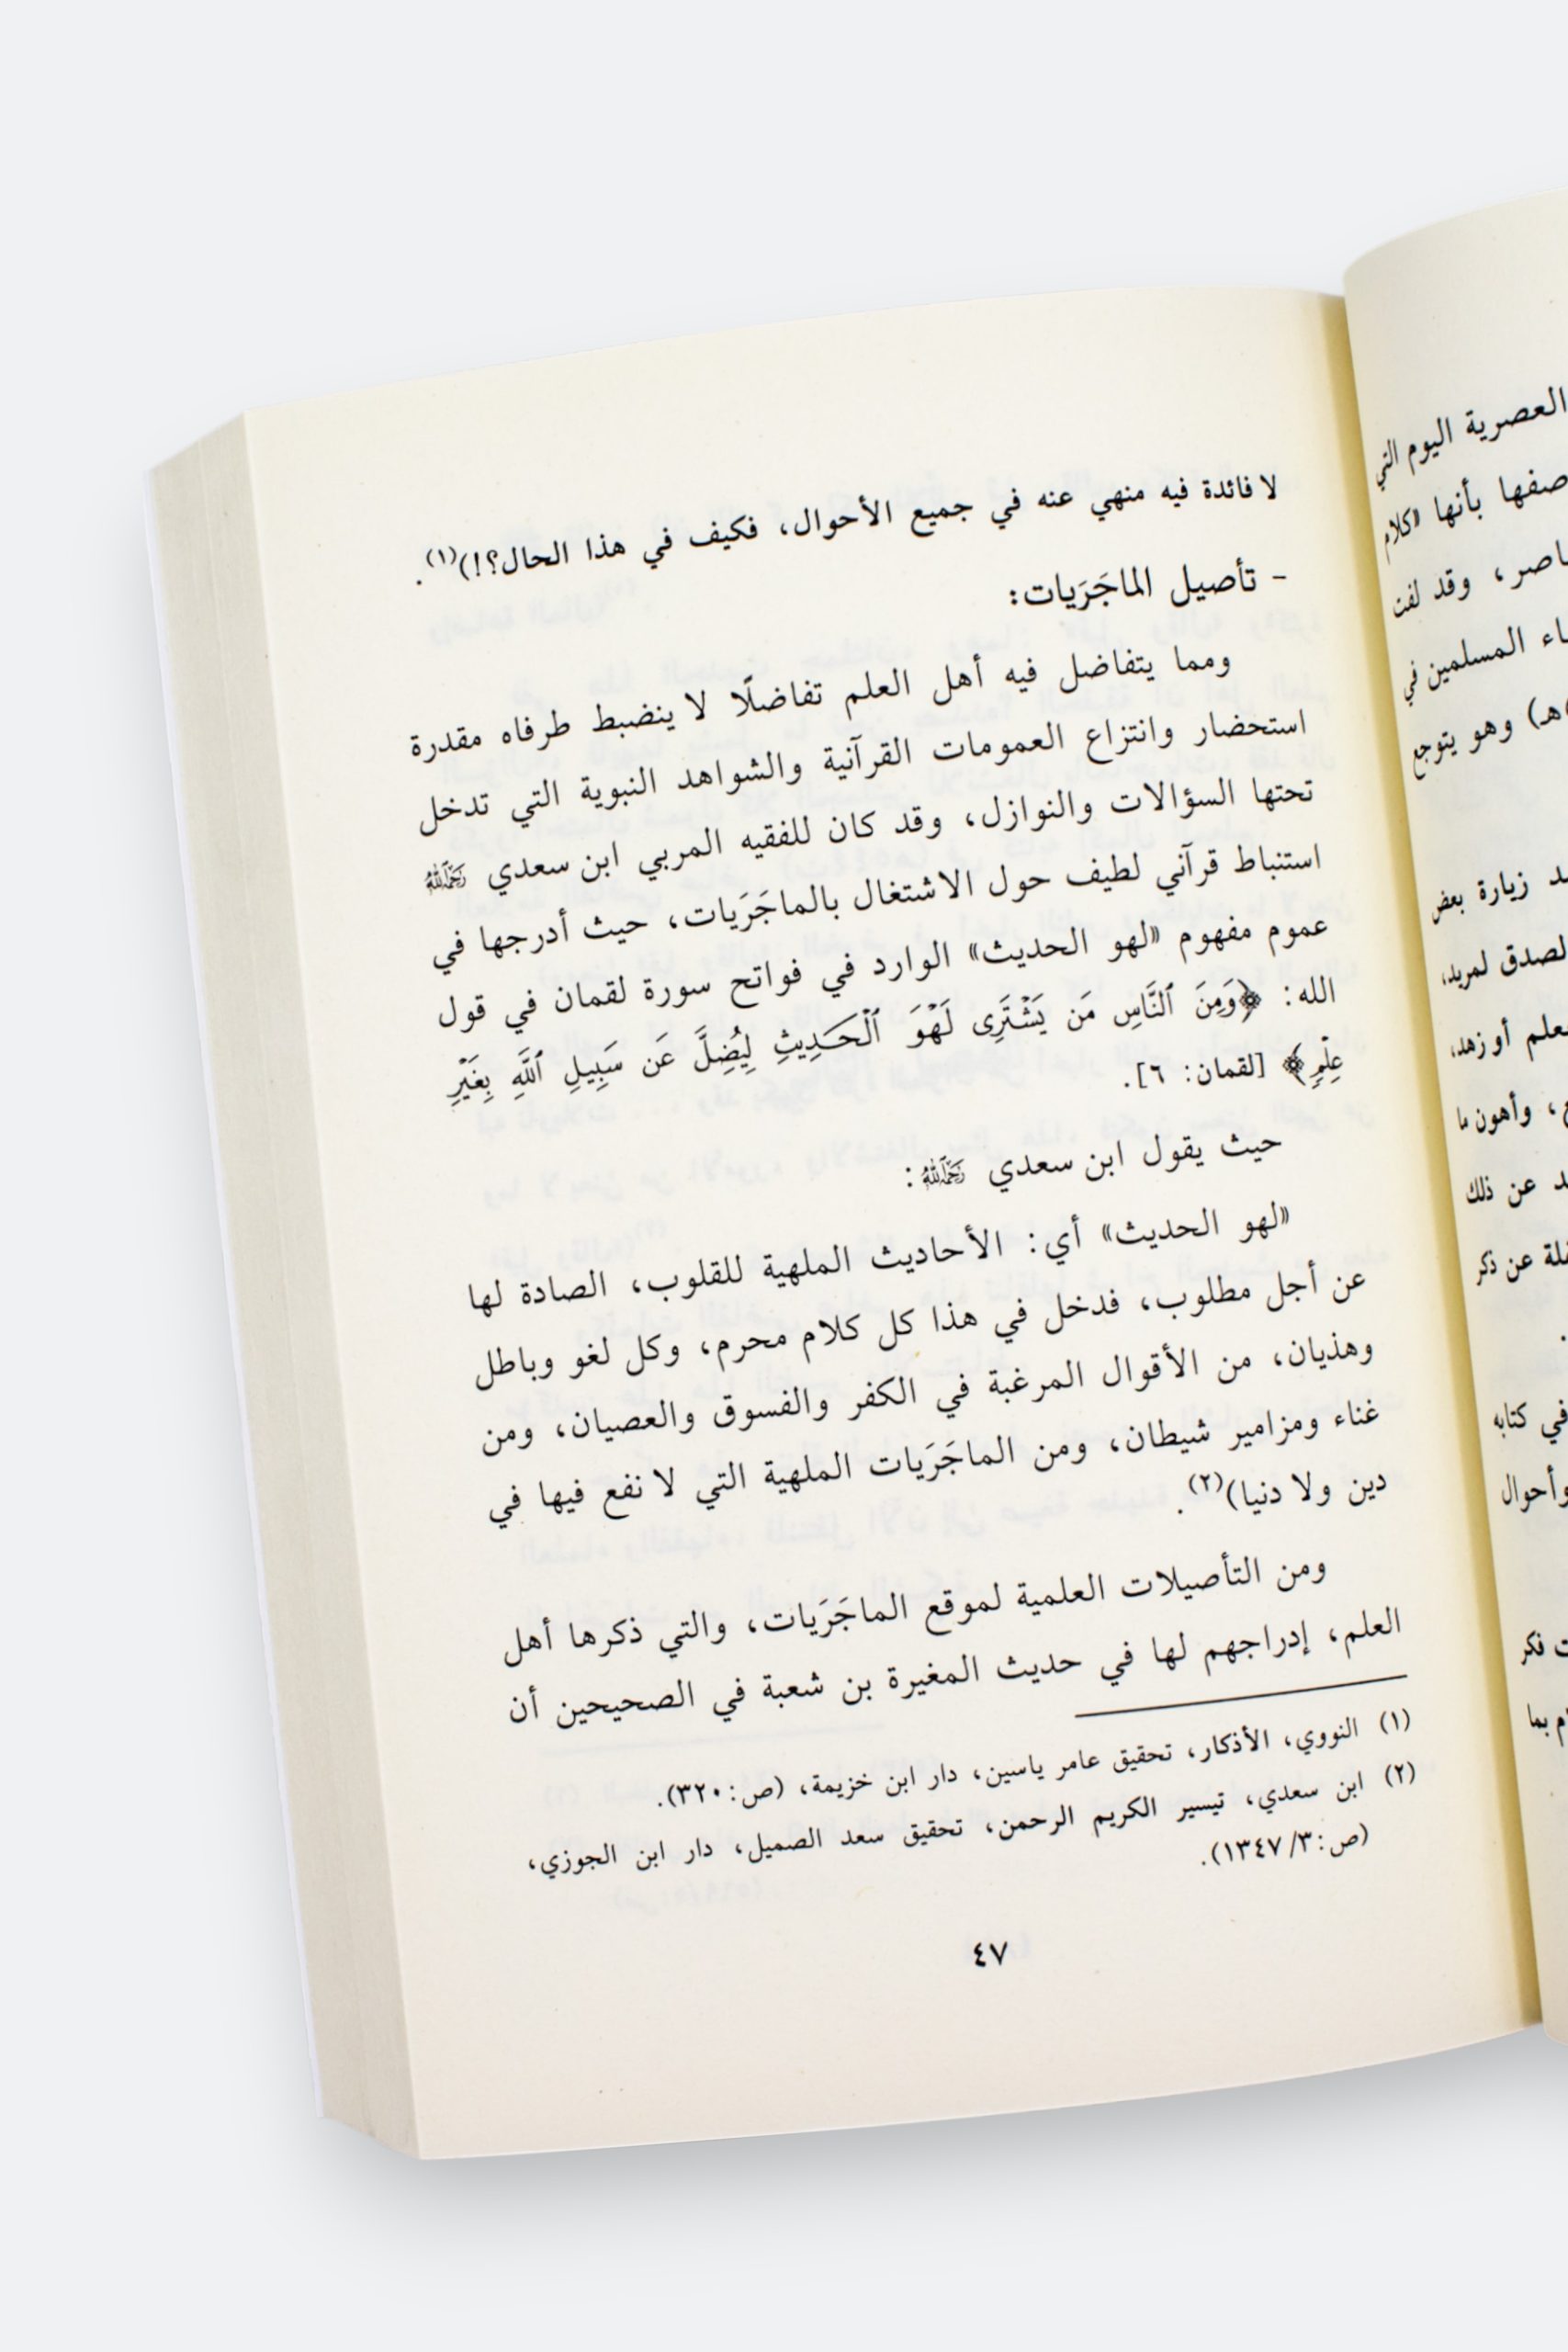 لا فائدة فيه منهي عنه في جميع الأحوال، فكيف في هذا الحال؟!)(١).
- تأصيل الماجَرَيات:
ومما يتفاضل فيه أهل العلم تفاضلًا لا ينضبط طرفاه مقدرة
استحضار وانتزاع العمومات القرآنية والشواهد النبوية التي تدخل
تحتها السؤالات والنوازل، وقد كان للفقيه المربي ابن سعدي رَحِمَهُ ٱللَّهُ
استنباط قرآني لطيف حول الاشتغال بالماجَرَيات، حيث أدرجها في
عموم مفهوم «لهو الحديث» الوارد في فواتح سورة لقمان في قول
الله: ﴿وَمِنَ ٱلنَّاسِ مَن يَشْتَرِى لَهْوَ ٱلْحَدِيثِ لِيُضِلَّ عَن سَبِيلِ ٱللَّهِ بِغَيْرِ
عِلْمٍ﴾ [لقمان: ٦].
حيث يقول ابن سعدي رَحِمَهُ ٱللَّهُ:
«لهو الحديث» أي: الأحاديث الملهية للقلوب، الصادة لها
عن أجل مطلوب، فدخل في هذا كل كلام محرم، وكل لغو وباطل
وهذيان، من الأقوال المرغبة في الكفر والفسوق والعصيان، ومن
غناء ومزامير شيطان، ومن الماجَرَيات الملهية التي لا نفع فيها في
دين ولا دنيا)(٢).
ومن التأصيلات العلمية لموقع الماجَرَيات، والتي ذكرها أهل
العلم، إدراجهم لها في حديث المغيرة بن شعبة في الصحيحين أن
(١) النووي، الأذكار، تحقيق عامر ياسين، دار ابن خزيمة، (ص:٣٢٠).
(٢) ابن سعدي، تيسير الكريم الرحمن، تحقيق سعد الصميل، دار ابن الجوزي،
(ص:٣/١٣٤٧).
٤٧
العصرية اليوم التي
صفها بأنها «كلام
وقد لفت
المسلمين في
هـ) وهو يتوجع
زيارة بعض
لصدق لمريد،
أو زهد،
وأهون ما
عن ذلك
عن ذكر
في كتابه
وأحوال
فكر
بما